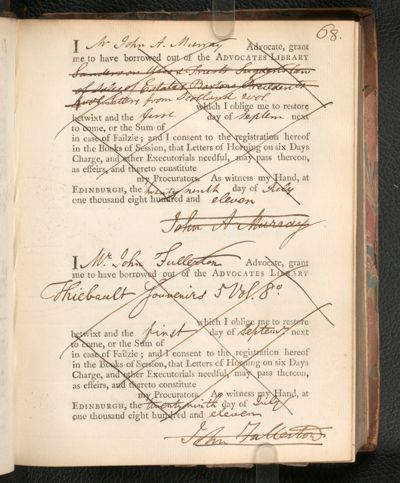 68.
I Mr John A. Murray Advocate, grant
me to have borrowed out of the ADVOCATES LIBRARY
Letters from Scotland 2 vol.
which I oblige me to restore
betwixt and the first day of Septem next
to come, or the Sum of
in case of Failzie; and I consent to the registration hereof
in the Books of Session, that Letters of Horning on six Days
Charge, and other Executorials needful, may pass thereon,
as effeirs, and thereto constitute
my Procurators. As witness my Hand, at
EDINBURGH, the twenty ninth day of July
one thousand eight hundred and eleven
John A Murray
I Mr John Fullerton Advocate, grant
me to have borrowed out of the ADVOCATES LIBRARY
Thiebault Souvenirs 5 Vol. 8o
which I oblige me to restore
betwixt and the first day of Septemr next
to come, or the Sum of
in case of Failzie; and I consent to the registration hereof
in the Books of Session, that Letters of Horning on six Days
Charge, and other Executorials needful, may pass thereon,
as effeirs, and thereto constitute
my Procurators. As witness my Hand, at
EDINBURGH, the twenty ninth day of July
one thousand eight hundred and eleven
John Fullerton